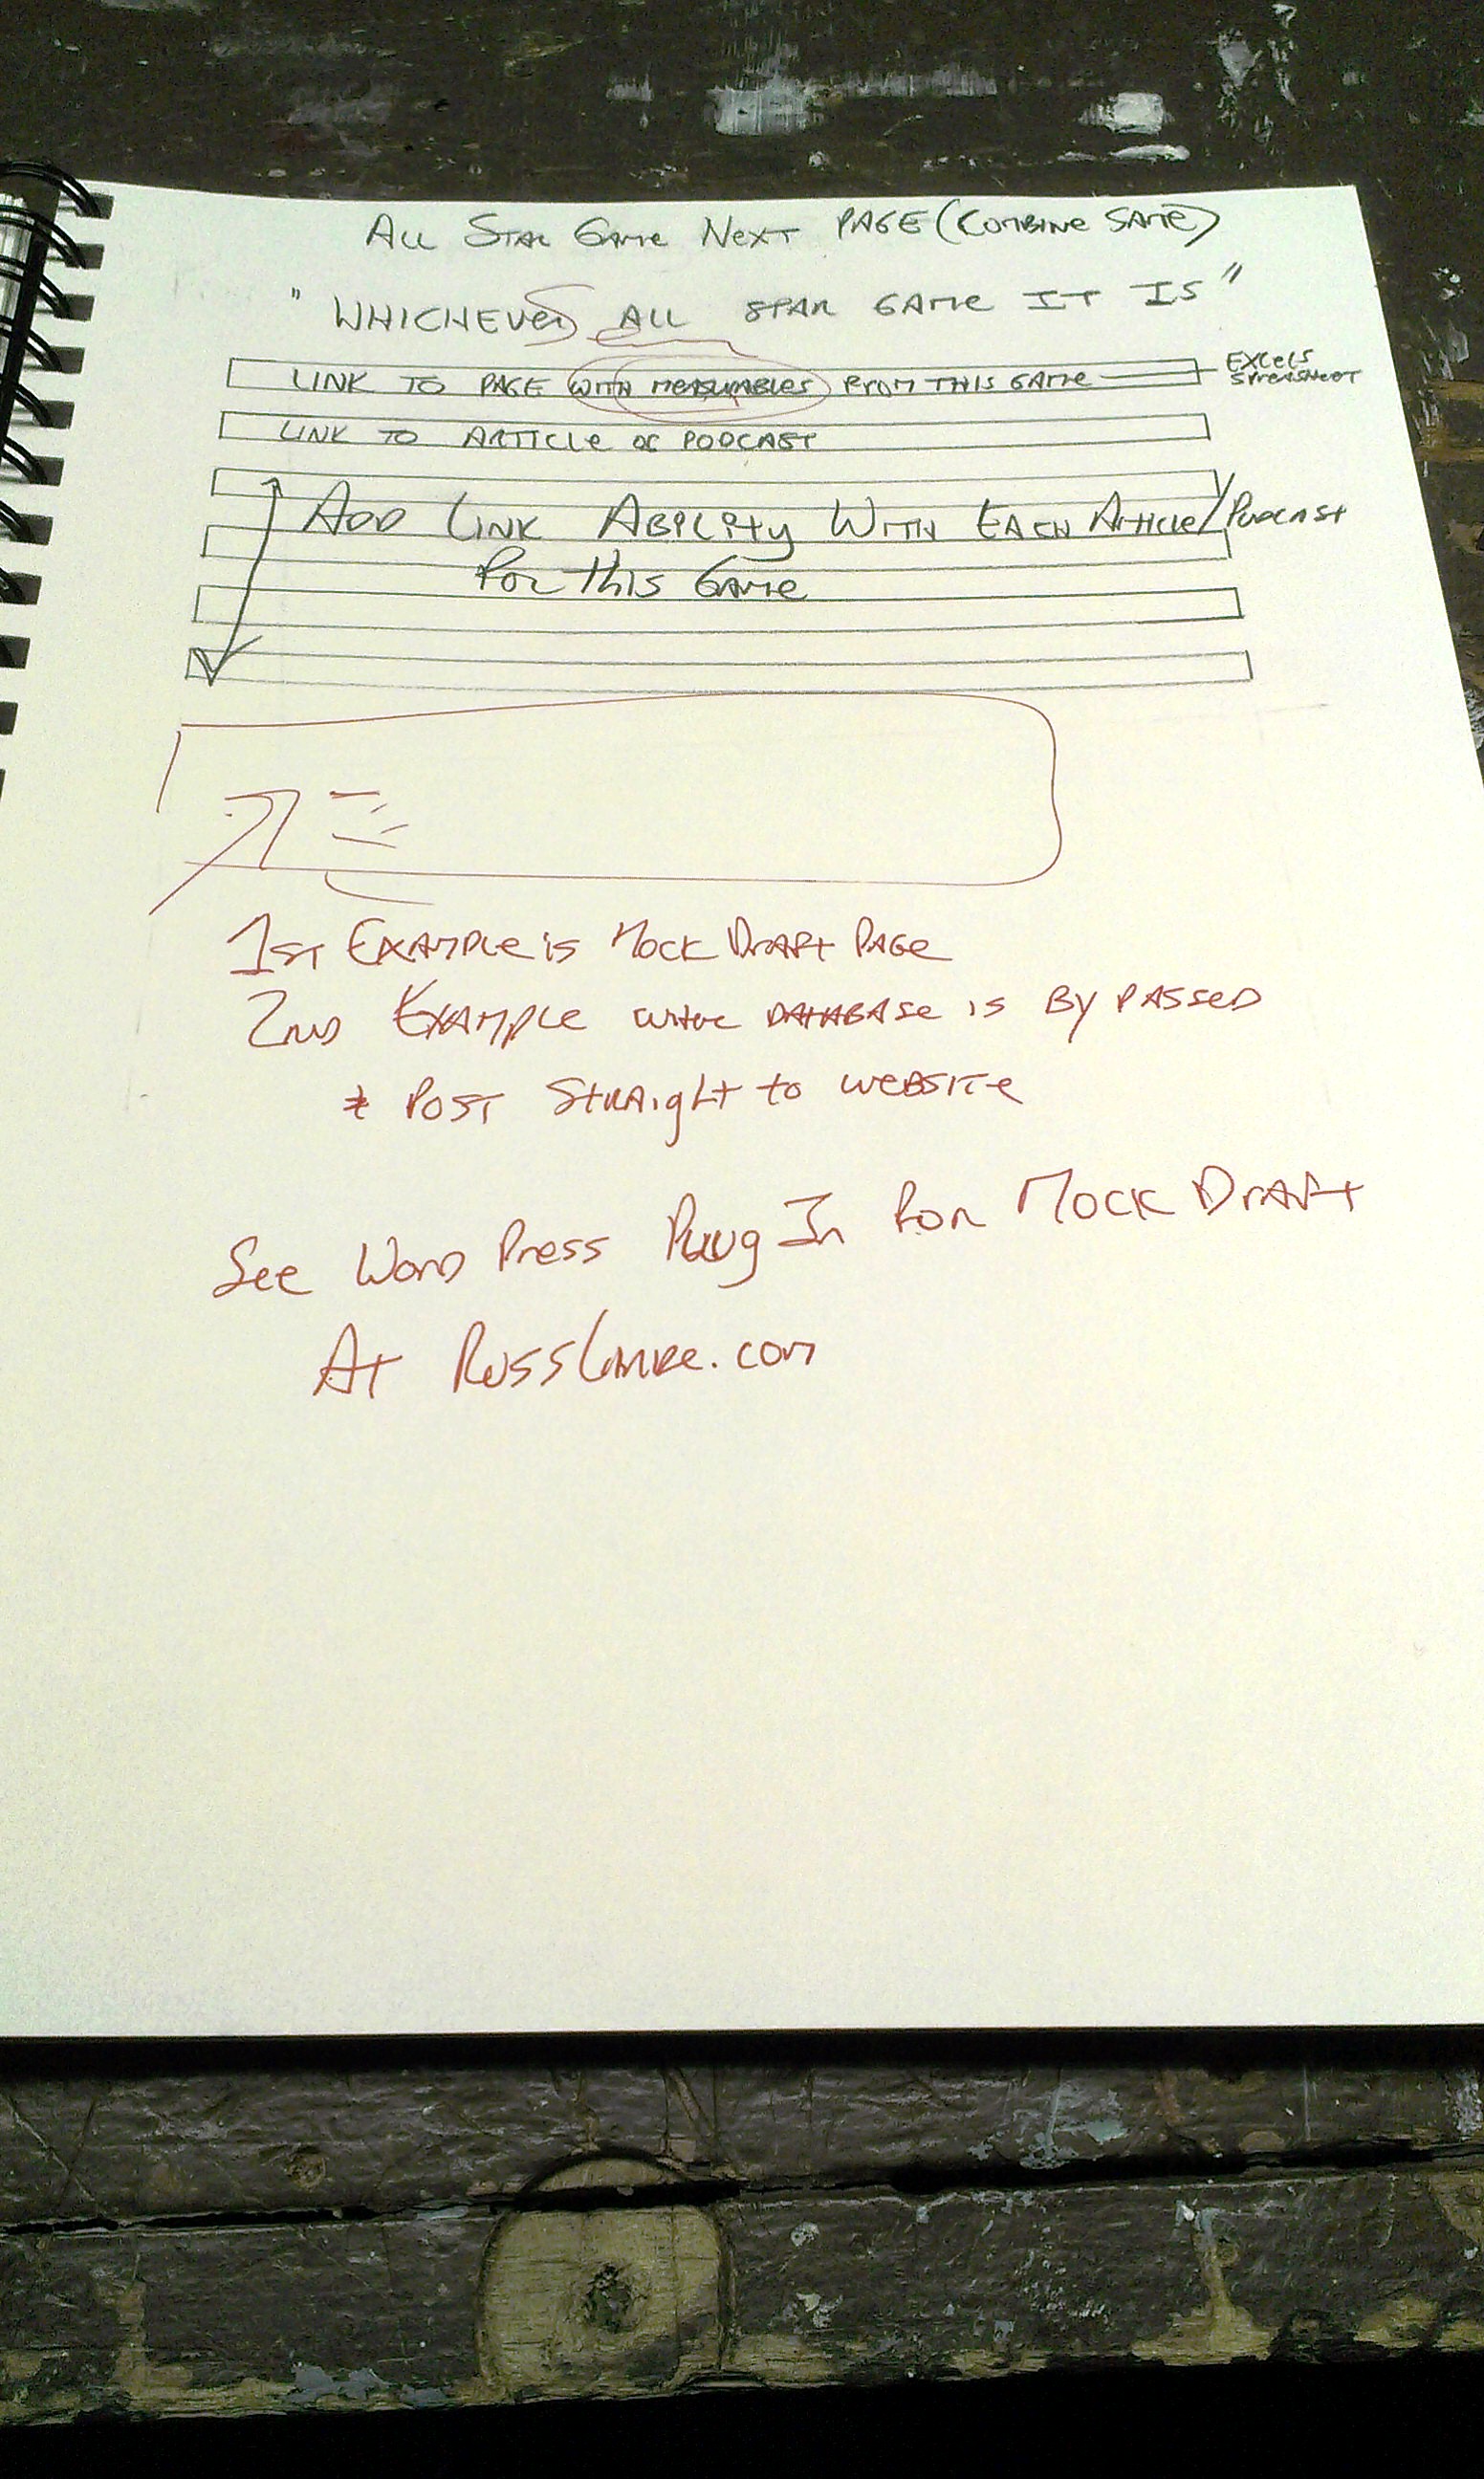 ALL STAR GAME NEXT PAGE (COMBINE SAME)
"WHICHEVER ALL STAR GAME IT IS"
LINK TO PAGE WITH MEASURABLES FROM THIS GAME
EXCELS
SPREADSHEET
LINK TO ARTICLE OR PODCAST
ADD LINK ABILITY WITH EACH ARTICLE/PODCAST
FOR THIS GAME
1ST EXAMPLE IS MOCK DRAFT PAGE
2ND EXAMPLE DATABASE IS BY PASSED
* POST STRAIGHT TO WEBSITE
SEE WORD PRESS PLUG IN FOR MOCK DRAFT
AT